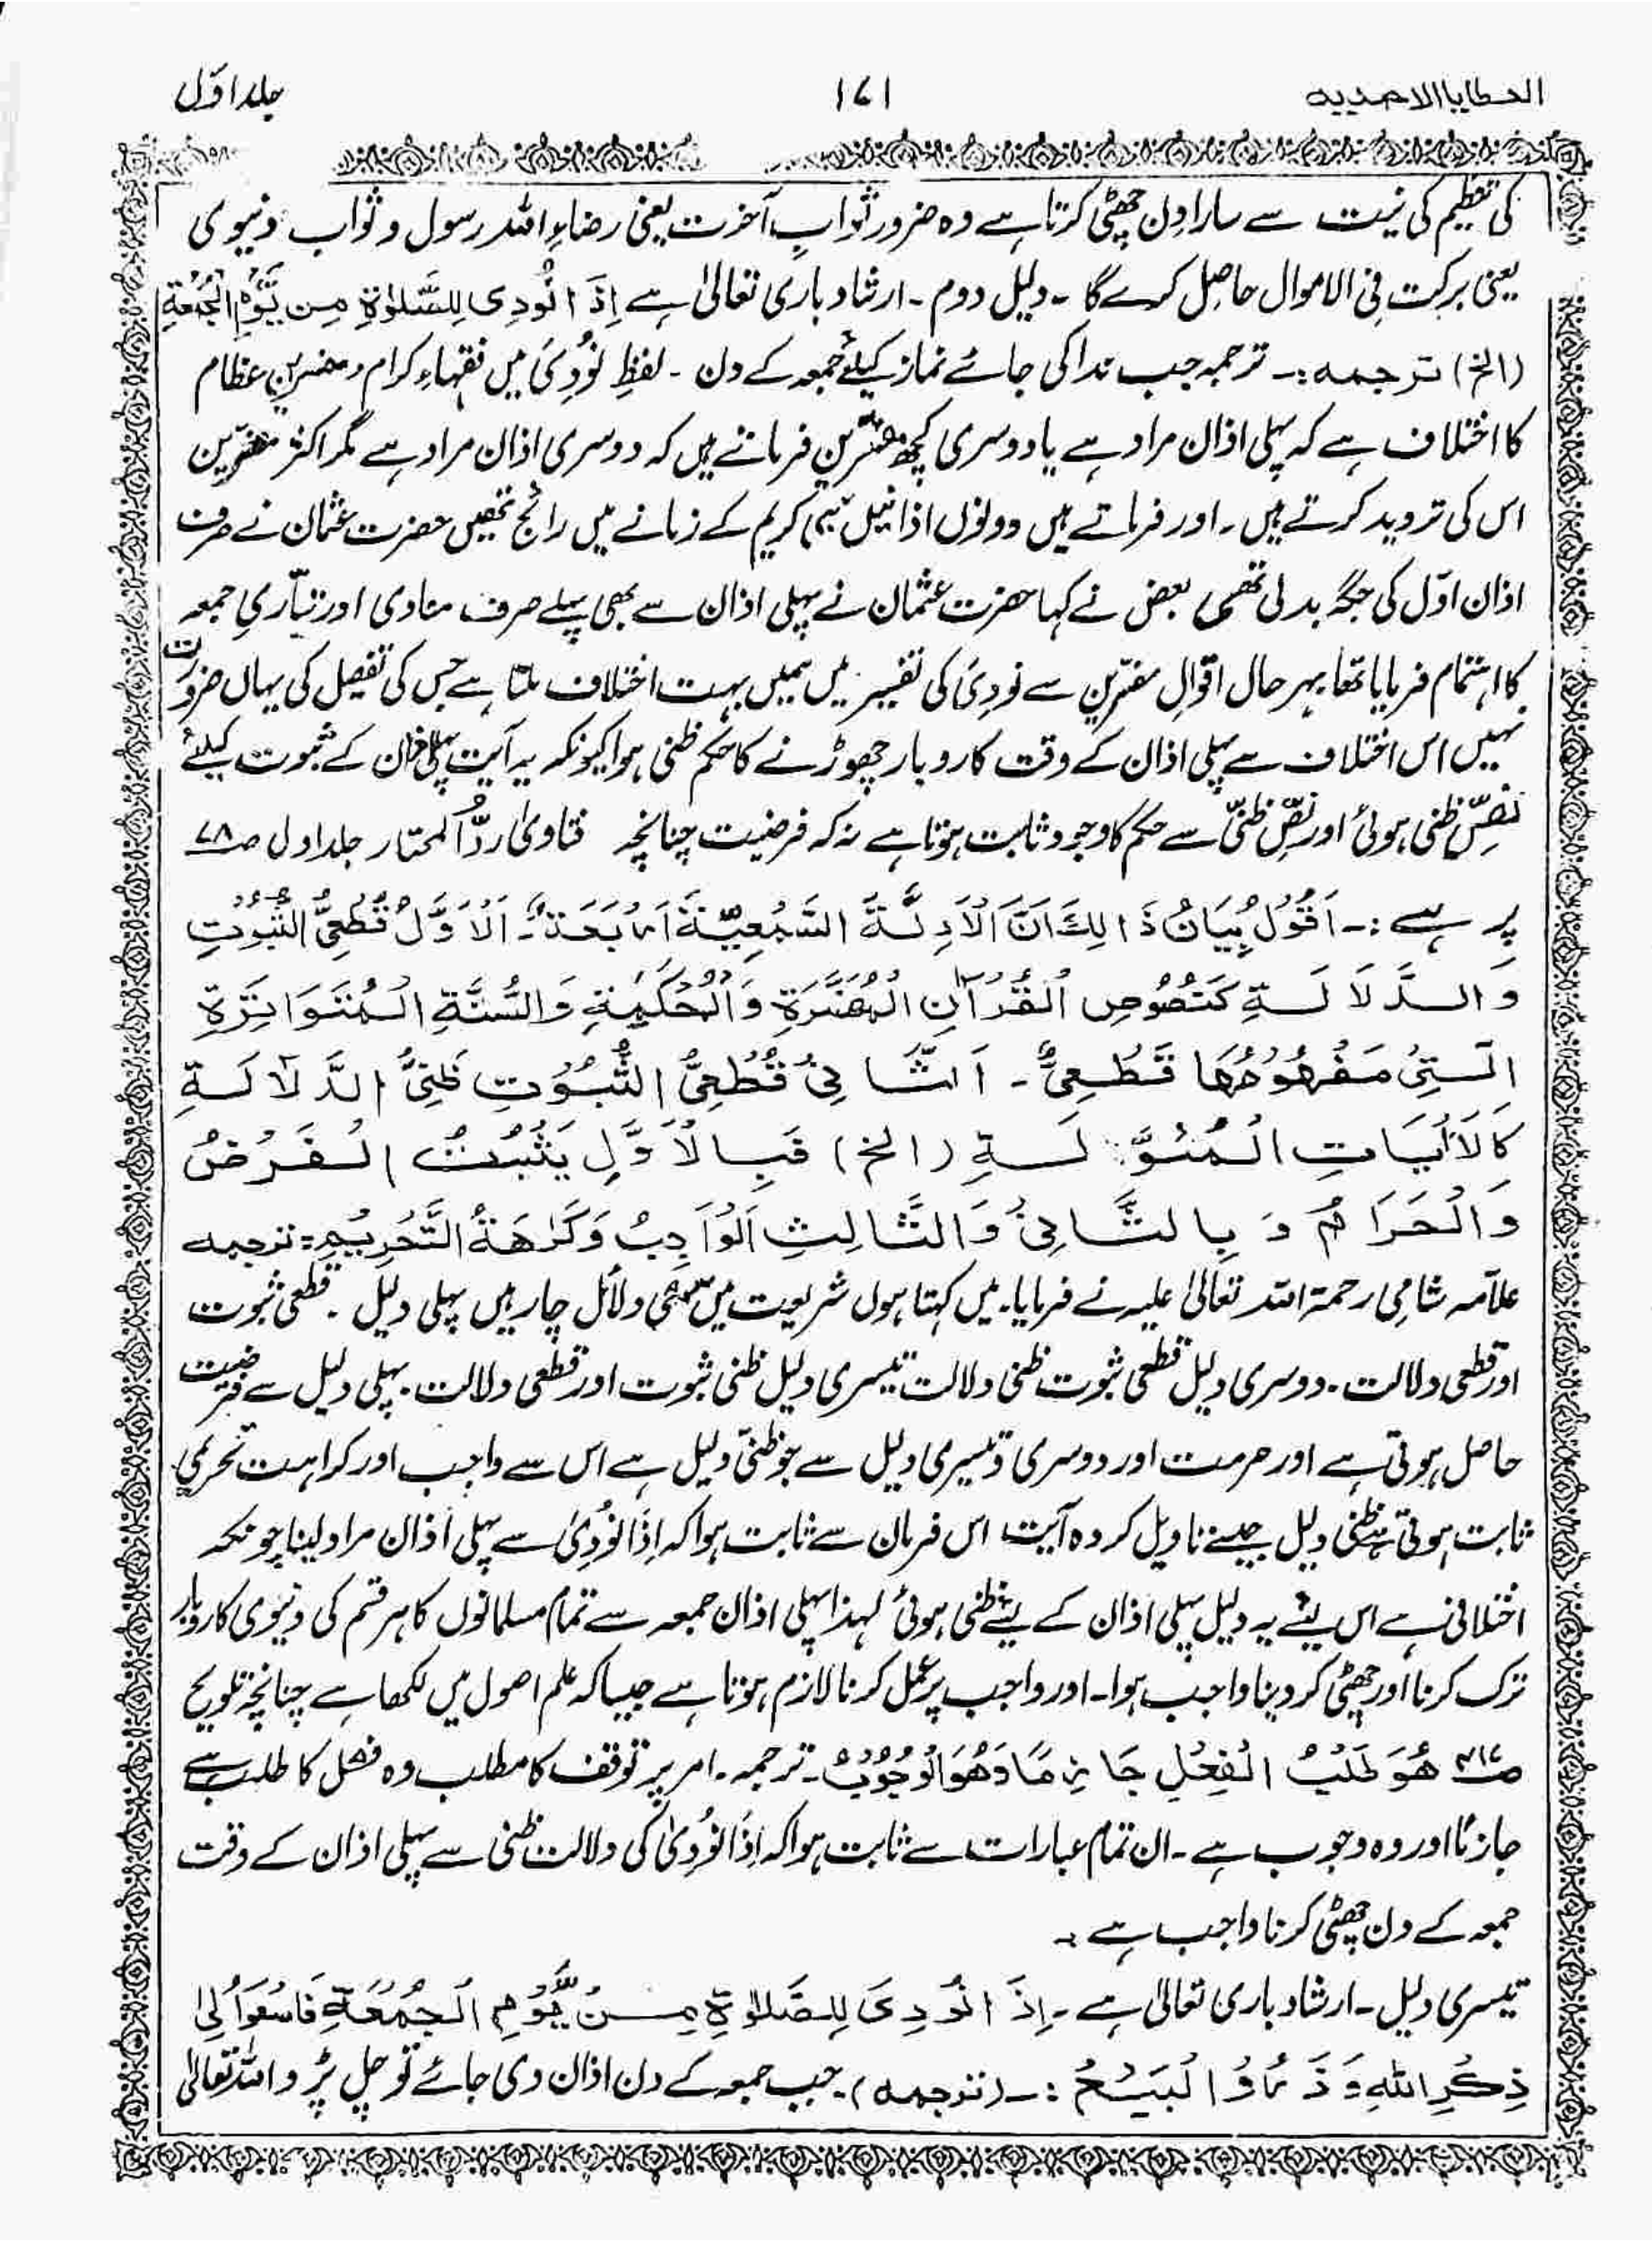 العطایا الاحمدیہ ۱۷۱ جلد اوّل
کی تعظیم کی نیت سے سارا دن چھٹی کرتا ہے وہ ضرور ثوابِ آخرت یعنی رضاءِ اللہ رسول و ثواب دنیوی
یعنی برکت فی الاموال حاصل کرے گا ۔ دلیل دوم ۔ ارشاد باری تعالیٰ ہے اِذَا نُودِی لِلصَّلٰوۃِ مِن یَّوْمِ الْجُمُعَۃِ
(الخ) ترجمہ:۔ ترجمہ جب ندا کی جائے نماز کیلئے جمعہ کے دن ۔ لفظِ نُوْدِیَ میں فقہاءِ کرام و مفسرین عظام
کا اختلاف ہے کہ پہلی اذان مراد ہے یا دوسری کچھ مفسّرین فرماتے ہیں کہ دوسری اذان مراد ہے مگر اکثر مفسّرین
اس کی تردید کرتے ہیں ۔ اور فرماتے ہیں دونوں اذانیں نبی کریم کے زمانے میں رائج تھیں حضرت عثمان نے صرف
اذان اوّل کی جگہ بدلی تھی بعض نے کہا حضرت عثمان نے پہلی اذان سے بھی پہلے صرف منادی اور تیّاریِ جمعہ
کا اہتمام فرمایا تھا بہر حال اقوالِ مفسّرین سے نودِیَ کی تفسیر میں ہمیں بہت اختلاف ملتا ہے جس کی تفصیل کی یہاں ضرورت
نہیں اس اختلاف سے پہلی اذان کے وقت کاروبار چھوڑنے کا حکم ظنی ہوا کیونکہ یہ آیت پہلی اذان کے ثبوت کیلئے
نصِّ ظنی ہوئی اور نصِّ ظنیّ سے حکم کا وجود ثابت ہوتا ہے نہ کہ فرضیت چنانچہ فتاویٰ ردُّ المحتار جلد اول ص۷۸
پر ہے :۔ اَقُوْلُ بَیَانُ ذَالِکَ اَنَّ الْاَدِلَّۃَ السَّمْعِیَّۃَ اَرْبَعَۃٌ ۔ اَلْاَوَّلُ قَطْعِیُّ الثُّبُوْتِ
وَالدَّلَالَۃِ کَنُصُوْصِ الْقُرْآنِ الْمُفَسَّرَۃِ وَالْمُحْکَمَۃِ وَالسُّنَّۃِ الْمُتَوَاتِرَۃِ
الَّتِیْ مَفْہُوْمُہَا قَطْعِیٌّ ۔ اَلثَّانِیْ قَطْعِیُّ الثُّبُوْتِ ظَنِّیُّ الدَّلَالَۃِ
کَالْاٰیَاتِ الْمُئَوَّلَۃِ (الخ) فَبِالْاَوَّلِ یَثْبُتُ الْفَرْضُ
وَالْحَرَامُ وَ بِالثَّانِیْ وَالثَّالِثِ اَلْوَاجِبُ وَکَرَاہَۃُ التَّحْرِیْمِ = ترجمہ
علاّمہ شامی رحمۃ اللہ تعالیٰ علیہ نے فرمایا ۔ میں کہتا ہوں شریعت میں سمعی دلائل چار ہیں پہلی دلیل ۔ قطعی ثبوت
اور قطعی دلالت ۔ دوسری دلیل قطعی ثبوت ظنی دلالت تیسری دلیل ظنی ثبوت اور قطعی دلالت ۔ پہلی دلیل سے فرضیت
حاصل ہوتی ہے اور حرمت اور دوسری و تیسری دلیل سے جو ظنیّ دلیل ہے اس سے واجب اور کراہت تحریمی
ثابت ہوتی ہے ظنی دلیل جیسے تاویل کردہ آیت اس فرمان سے ثابت ہوا کہ اِذَا نُوْدِیَ سے پہلی اذان مراد لینا چونکہ
اختلافی ہے اس لیئے یہ دلیل پہلی اذان کے لیئے ظنی ہوئی لہذا پہلی اذان جمعہ سے تمام مسلمانوں کا ہر قسم کی دنیوی کاروبار
ترک کرنا اور چھٹی کر دینا واجب ہوا ۔ اور واجب پر عمل کرنا لازم ہوتا ہے جیسا کہ علم اصول میں لکھا ہے چنانچہ تلویح
ھُوَ طَلَبُ الْفِعْلِ جَازِمًا وَھُوَ الْوُجُوْبُ ۔ ترجمہ ۔ امر پر توقف کا مطلب وہ فعل کا طلب ہے
جازمًا اور وہ وجوب ہے ۔ ان تمام عبارات سے ثابت ہوا کہ اِذَا نُوْدِیَ کی دلالت ظنی سے پہلی اذان کے وقت
جمعہ کے دن چھٹی کرنا واجب ہے ۔
تیسری دلیل ۔ ارشاد باری تعالیٰ ہے ۔ اِذَا نُوْدِیَ لِلصَّلٰوۃِ مِنْ یَّوْمِ الْجُمُعَۃِ فَاسْعَوْا اِلٰی
ذِکْرِ اللہِ وَ ذَرُوْا الْبَیْعَ :۔ (ترجمہ) ۔ جب جمعہ کے دن اذان دی جائے تو چل پڑو اللہ تعالیٰ